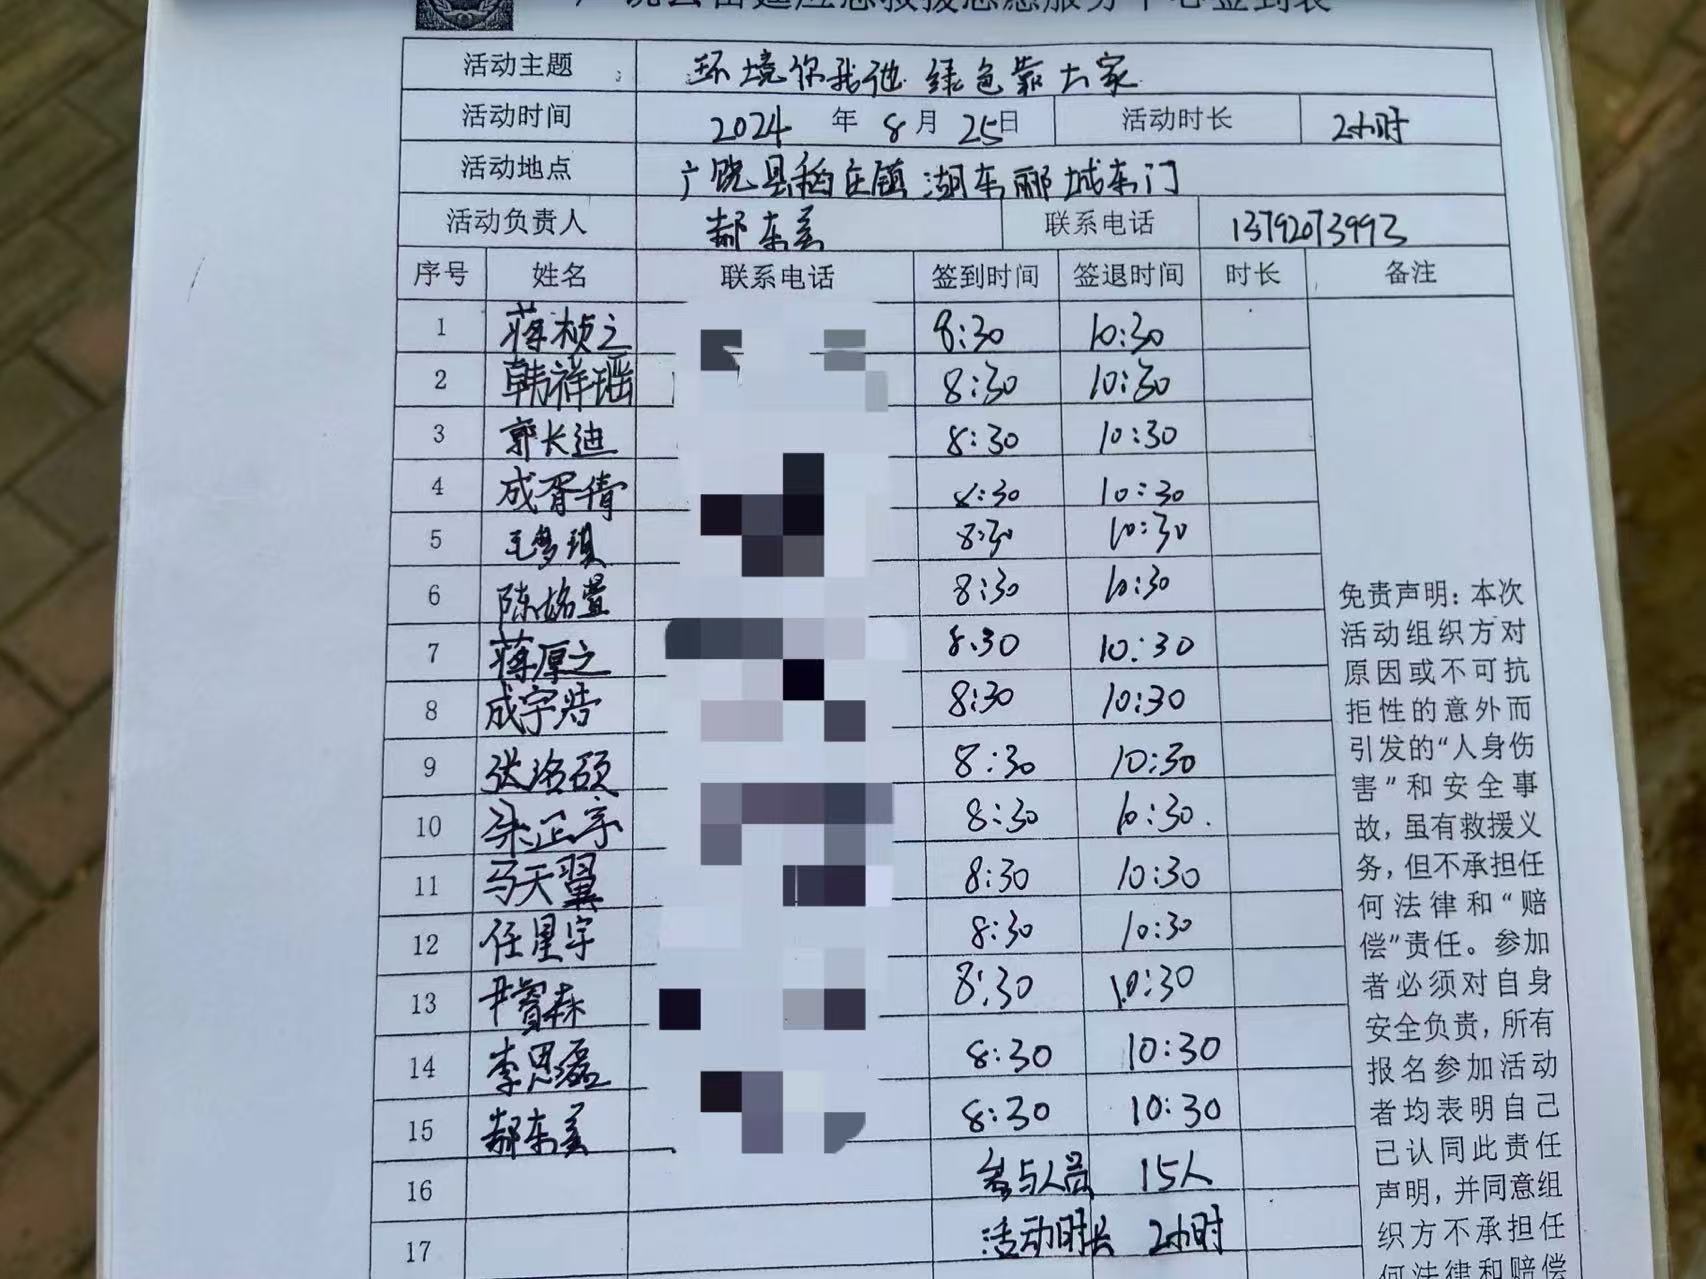 活动主题 环境你我他 绿色靠大家
活动时间 2024 年 8 月 25日 活动时长 2小时
活动地点 广饶县稻庄镇 湖东郦城东门
活动负责人 郝东美 联系电话 13792073993
序号 姓名 联系电话 签到时间 签退时间 时长 备注
1 蒋桢之 8:30 10:30
2 韩祥瑶 8:30 10:30
3 郭长迪 8:30 10:30
4 成胥倩 8:30 10:30
5 8:30 10:30
6 陈姳萱 8:30 10:30
7 蒋厚之 8.30 10:30
8 成宇浩 8:30 10:30
9 张洛硕 8:30 10:30
10 梁正宇 8:30 10:30.
11 马天翼 8:30 10:30
12 任星宇 8:30 10:30
13 尹睿森 8:30 10:30
14 李思磊 8:30 10:30
15 郝东美 8:30 10:30
16 参与人员 15人
17 活动时长 2小时
免责声明：本次
活动组织方对
原因或不可抗
拒性的意外而
引发的“人身伤
害”和安全事
故，虽有救援义
务，但不承担任
何法律和“赔
偿”责任。参加
者必须对自身
安全负责，所有
报名参加活动
者均表明自己
已认同此责任
声明，并同意组
织方不承担任
何法律和赔偿